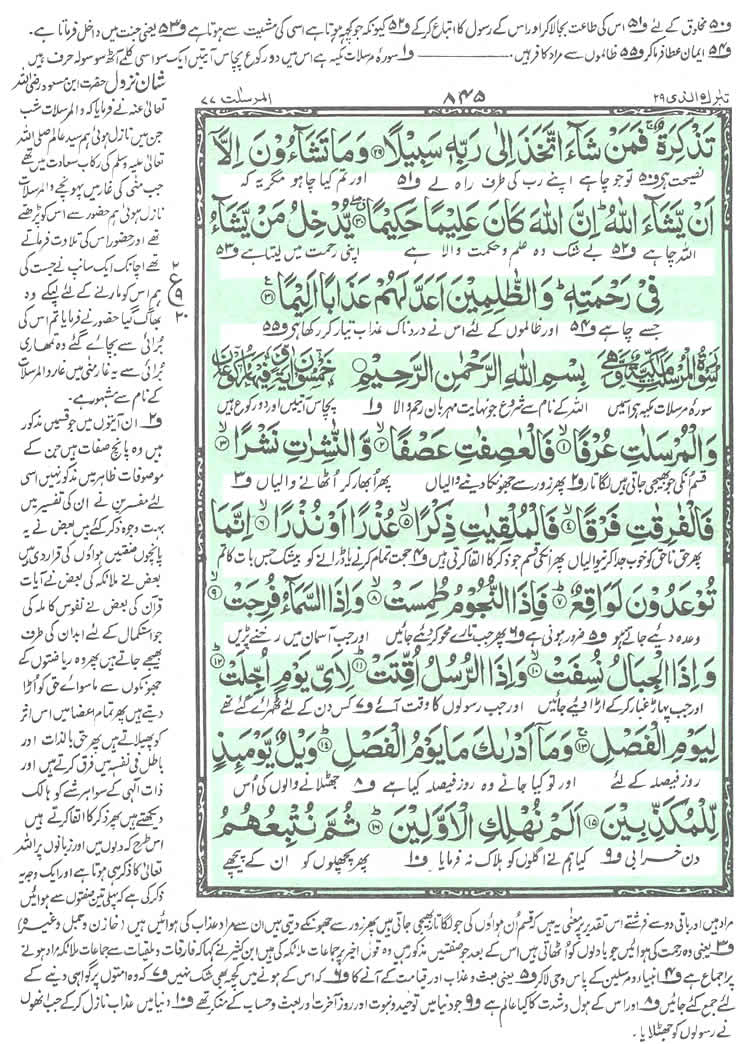 ف۵۰ مخلوق کے لئے ف۵۱ اس کی طاعت بجالا کر اور اس کے رسول کا اتباع کرکے ف۵۲ کیونکہ جو کچھ ہوتا ہے اسی کی مشیت سے ہوتا ہے ف۵۳ یعنی جنت میں داخل فرماتا ہے۔
ف۵۴ ایمان عطا فرما کر ف۵۵ ظالموں سے مراد کافر ہیں۔ ف۱ سورۂ مرسلات مکیہ ہے اس میں دو رکوع پچاس آیتیں ایک سو اسی کلمے آٹھ سو سولہ حرف ہیں
تبٰرک الذی ۲۹
۸۴۵
المرسلٰت ۷۷
تَذْكِرَةٌ ۚ فَمَنْ شَآءَ اتَّخَذَ اِلٰى رَبِّهٖ سَبِيْلًا ﴿۲۹﴾ وَمَا تَشَآءُوْنَ اِلَّآ
نصیحت ہے ف۵۰ تو جو چاہے اپنے رب کی طرف راہ لے ف۵۱ اور تم کیا چاہو مگر یہ کہ
اَنْ يَّشَآءَ اللّٰهُ ؕ اِنَّ اللّٰهَ كَانَ عَلِيْمًا حَكِيْمًا ﴿۳۰﴾ يُّدْخِلُ مَنْ يَّشَآءُ
اللہ چاہے ف۵۲ بے شک وہ علم و حکمت والا ہے اپنی رحمت میں لیتا ہے ف۵۳
فِيْ رَحْمَتِهٖ ؕ وَالظّٰلِمِيْنَ اَعَدَّ لَهُمْ عَذَابًا اَلِيْمًا ﴿۳۱﴾
جسے چاہے ف۵۴ اور ظالموں کے لئے اس نے دردناک عذاب تیار کر رکھا ہے ف۵۵
بِسْمِ اللّٰهِ الرَّحْمٰنِ الرَّحِيْمِ
سورۂ مرسلات مکیہ ہے اس میں اللہ کے نام سے شروع جو نہایت مہربان رحم والا ف۱ پچاس آیتیں اور دو رکوع ہیں
وَالْمُرْسَلٰتِ عُرْفًا ﴿۱﴾ فَالْعٰصِفٰتِ عَصْفًا ﴿۲﴾ وَّالنّٰشِرٰتِ نَشْرًا ﴿۳﴾
قسم انکی جو بھیجی جاتی ہیں لگاتار ف۲ پھر زور سے جھونکا دینے والیاں پھر ابھار کر اٹھانے والیاں ف۳
فَالْفٰرِقٰتِ فَرْقًا ﴿۴﴾ فَالْمُلْقِيٰتِ ذِكْرًا ﴿۵﴾ عُذْرًا اَوْ نُذْرًا ﴿۶﴾ اِنَّمَا
پھر حق ناحق کو خوب جدا کرنیوالیاں پھر انکی قسم جو ذکر کا القا کرتی ہیں ف۴ حجت تمام کرنے یا ڈرانے کو بیشک جس بات کا تم
تُوْعَدُوْنَ لَوَاقِعٌ ﴿۷﴾ فَاِذَا النُّجُوْمُ طُمِسَتْ ﴿۸﴾ وَاِذَا السَّمَآءُ فُرِجَتْ ﴿۹﴾
وعدہ دیئے جاتے ہو ف۵ ضرور ہونی ہے ف۶ پھر جب تارے محو کر دیئے جائیں اور جب آسمان میں رخنے پڑیں
وَاِذَا الْجِبَالُ نُسِفَتْ ﴿۱۰﴾ وَاِذَا الرُّسُلُ اُقِّتَتْ ﴿۱۱﴾ لِاَيِّ يَوْمٍ اُجِّلَتْ ﴿۱۲﴾
اور جب پہاڑ غبار کرکے اڑا دیئے جائیں اور جب رسولوں کا وقت آئے ف۷ کس دن کے لئے ٹھہرائے گئے تھے
لِيَوْمِ الْفَصْلِ ﴿۱۳﴾ وَمَآ اَدْرٰىكَ مَا يَوْمُ الْفَصْلِ ﴿۱۴﴾ وَيْلٌ يَّوْمَئِذٍ
روز فیصلہ کے لئے اور تو کیا جانے وہ روز فیصلہ کیا ہے ف۸ جھٹلانے والوں کی اس
لِّلْمُكَذِّبِيْنَ ﴿۱۵﴾ اَلَمْ نُهْلِكِ الْاَوَّلِيْنَ ﴿۱۶﴾ ثُمَّ نُتْبِعُهُمُ
دن خرابی ف۹ کیا ہم نے اگلوں کو ہلاک نہ فرمایا ف۱۰ پھر پچھلوں کو ان کے پیچھے
شان نزول حضرت ابن مسعود رضی اللہ
تعالیٰ عنہ نے فرمایا کہ والمرسلات شب
جن میں نازل ہوئی ہم سید عالم صلی اللہ
تعالیٰ علیہ وسلم کی رکاب سعادت میں تھے
جب منٰی کی غار میں پہونچے والمرسلات
نازل ہوئی ہم حضور سے اس کو پڑھتے
تھے اور حضور اس کی تلاوت فرماتے
تھے اچانک ایک سانپ نے جست کی
ہم اس کو مارنے کے لئے لپکے وہ
بھاگ گیا حضور نے فرمایا تم اس کی
برائی سے بچائے گئے وہ تمھاری
برائی سے یہ غار منٰی میں غار والمرسلات
کے نام سے مشہور ہے۔
ف۲ ان آیتوں میں جو قسمیں مذکور
ہیں وہ پانچ صفات ہیں جن کے
موصوفات ظاہر میں مذکور نہیں اسی
لئے مفسرین نے ان کی تفسیر میں
بہت وجوہ ذکر کئے ہیں بعض نے یہ
پانچوں صفتیں ہواؤں کی قرار دی ہیں
بعض نے ملائکہ کی بعض نے آیات
قرآن کی بعض نے نفوس کاملہ کی
جو استکمال کے لئے ابدان کی طرف
بھیجے جاتے ہیں پھر وہ ریاضتوں کے
جھونکوں سے ماسوائے حق کو اڑا
دیتے ہیں پھر تمام اعضا میں اس اثر
کو پھیلاتے ہیں پھر حق بالذات اور
باطل فی نفسہ میں فرق کرتے ہیں اور
ذات الٰہی کے سوا ہر شے کو ہالک
دیکھتے ہیں پھر ذکر کا القا کرتے ہیں
اس طرح کہ دلوں میں اور زبانوں پر اللہ
تعالیٰ کا ذکر ہی ہوتا ہے اور ایک وجہ یہ
ذکر کی ہے کہ پہلی تین صفتوں سے ہوائیں
مراد ہیں اور باقی دو سے فرشتے اس تقدیر پر معنی یہ ہیں کہ قسم ان ہواؤں کی جو لگاتار بھیجی جاتی ہیں پھر زور سے جھونکے دیتی ہیں ان سے مراد عذاب کی ہوائیں ہیں (خازن وجمل وغیرہ)
ف۳ یعنی وہ رحمت کی ہوائیں جو بادلوں کو اٹھاتی ہیں اس کے بعد جو صفتیں مذکور ہیں وہ قول اخیر پر جماعات ملائکہ کی ہیں ابن کثیر نے کہا کہ فارقات و ملقیات سے جماعات ملائکہ مراد ہونے
پر اجماع ہے ف۴ انبیاء و مرسلین کے پاس وحی لا کر ف۵ یعنی بعث و عذاب اور قیامت کے آنے کا ف۶ کہ اس کے ہونے میں کچھ بھی شک نہیں ف۷ کہ وہ امتوں پر گواہی دینے کے
لئے جمع کئے جائیں ف۸ اور اس کے ہول و شدت کا کیا عالم ہے ف۹ جو دنیا میں توحید و نبوت اور روز آخرت اور بعث و حساب کے منکر تھے ف۱۰ دنیا میں عذاب نازل کرکے جب انھوں
نے رسولوں کو جھٹلایا۔